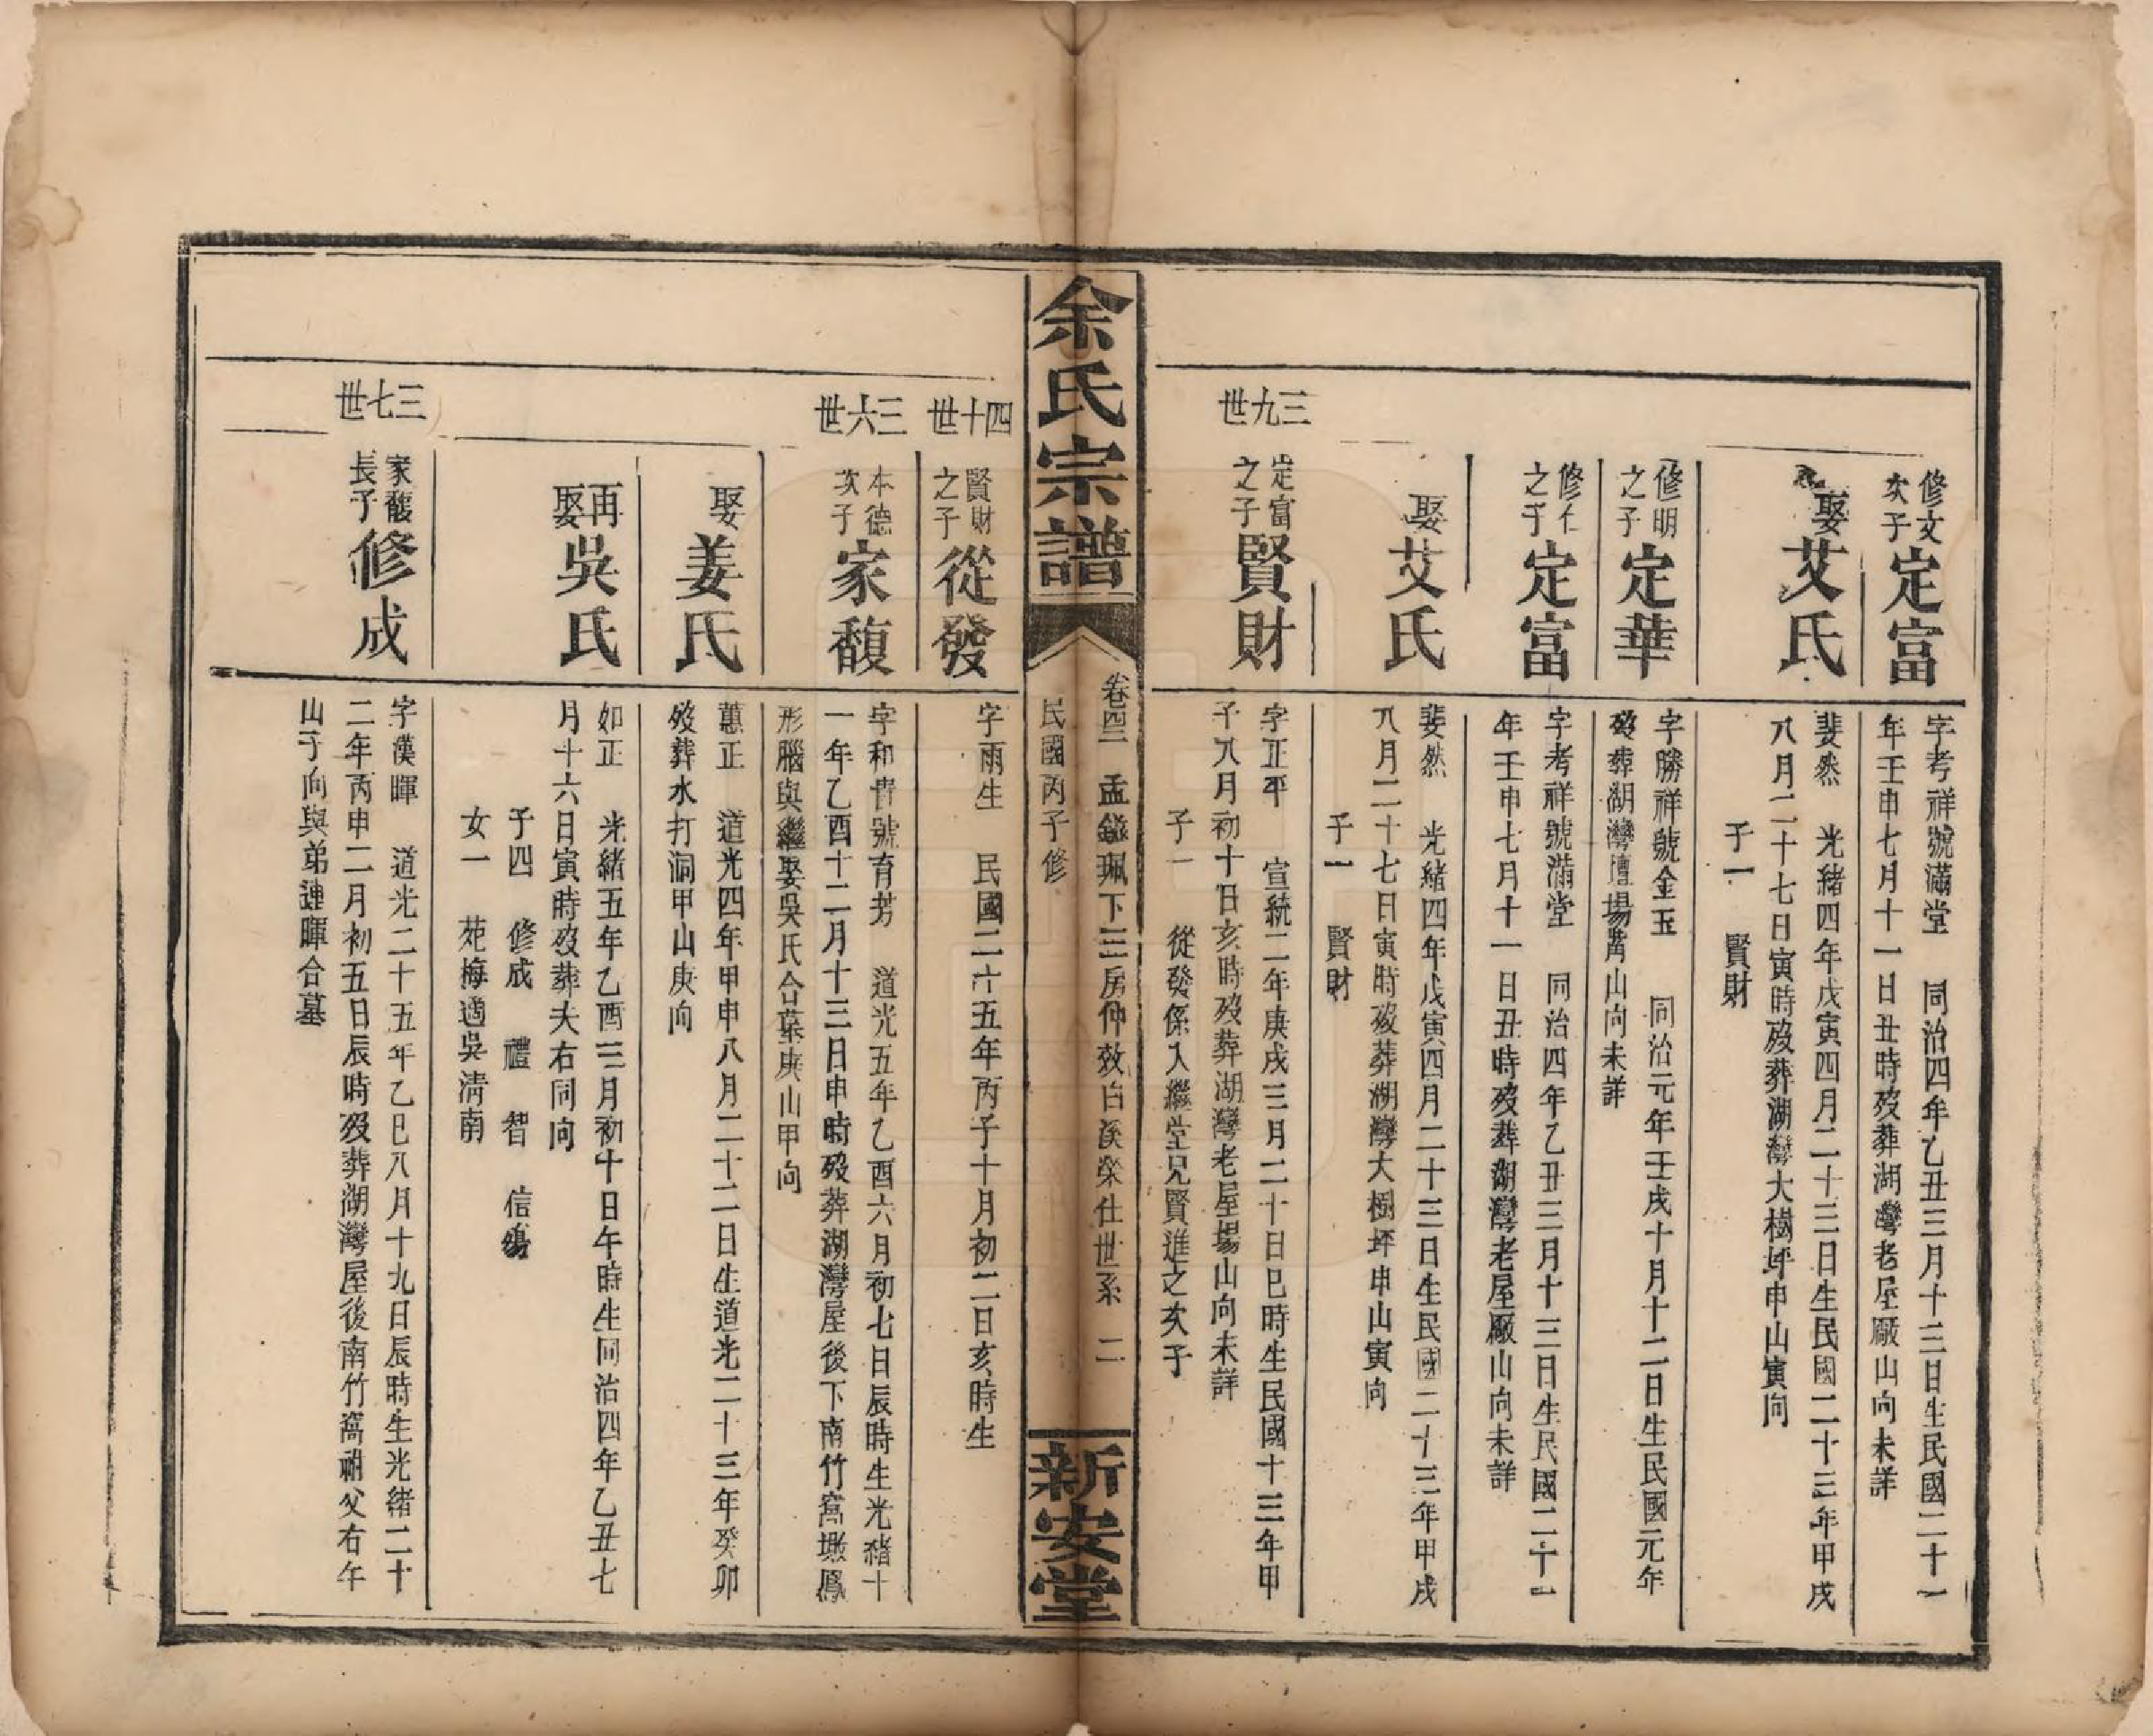 修文次子定富
字考祥號滿堂　同治四年乙丑三月十三日生民國二十一
年壬申七月十一日丑時歿葬湖灣老屋廠山向未詳
娶艾氏
斐然　光緒四年戊寅四月二十三日生民國二十三年甲戌
八月二十七日寅時歿葬湖灣大樹坪申山寅向
子一　賢財
修明之子定華
字勝祥號金玉　同治元年壬戌十月十二日生民國元年
歿葬湖灣壇場背山向未詳
修仁之子定富
字考祥號滿堂　同治四年乙丑三月十三日生民國二十一
年壬申七月十一日丑時歿葬湖灣老屋廠山向未詳
娶艾氏
斐然　光緒四年戊寅四月二十三日生民國二十三年甲戌
八月二十七日寅時歿葬湖灣大樹坪申山寅向
子一　賢財
三九世
定富之子賢財
字正平　宣統二年庚戌三月二十日巳時生民國十三年甲
子八月初十日亥時歿葬湖灣老屋場山向未詳
子一　從發係入繼堂兄賢進之次子
余氏宗譜
卷四二　孟鎰珮下三房仲效白溪榮仕世系　二
民國丙子修
新安堂
四十世
賢財之子從發
字雨生　民國二六五年丙子十月初二日亥時生
三六世
本德次子家馥
字和貴號育芳　道光五年乙酉六月初七日辰時生光緒十
一年乙酉十二月十三日申時歿葬湖灣屋後下南竹窩墩鳳
形腦與繼娶吳氏合墓庚山甲向
娶姜氏
蕙正　道光四年甲申八月二十二日生道光二十三年癸卯
歿葬水打洞甲山庚向
再娶吳氏
如正　光緒五年乙酉三月初十日午時生同治四年乙丑七
月十六日寅時歿葬夫右同向
子四　修成　禮　智　信
女一　苑梅適吳清南
三七世
家馥長子修成
字漢暉　道光二十五年乙巳八月十九日辰時生光緒二十
二年丙申二月初五日辰時歿葬湖灣屋後南竹窩祖父右午
山子向與弟漣暉合墓